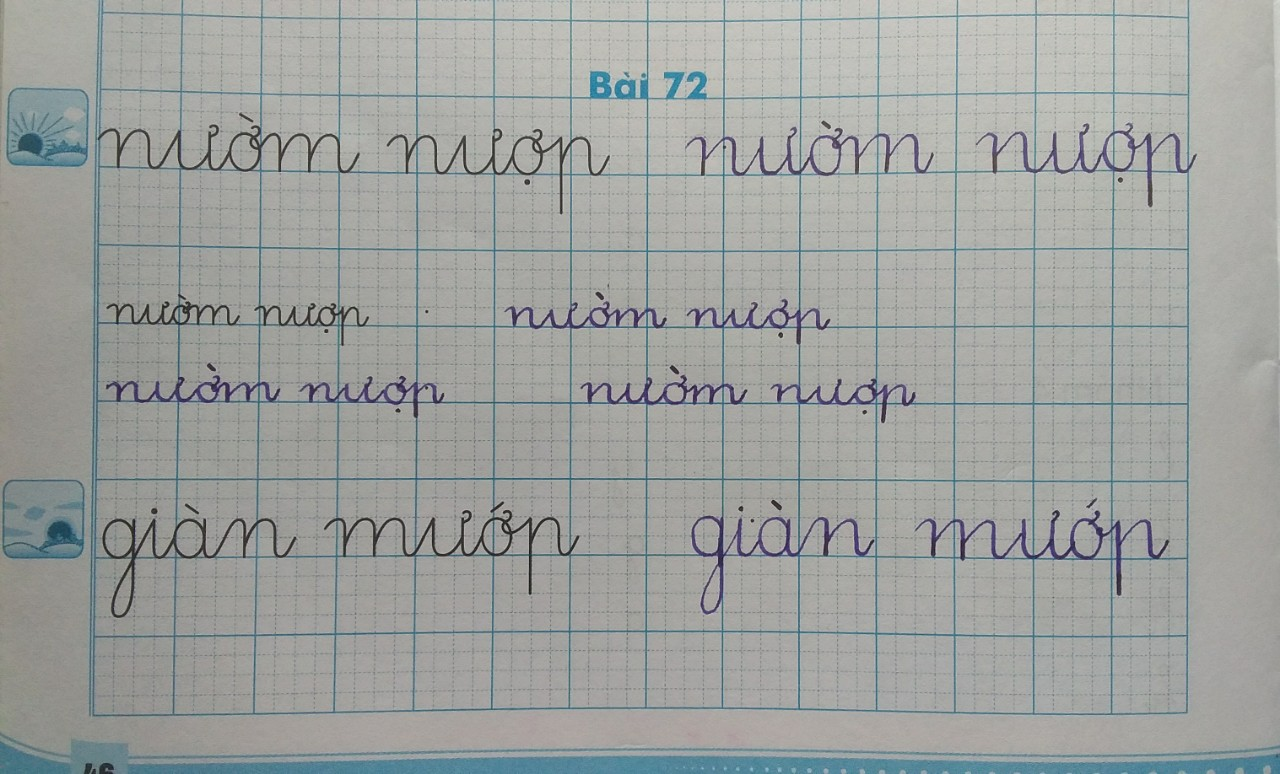 Bài 72
nườm nượp nườm nượp
nườm nượp nườm nượp
nườm nượp nườm nượp
giàn mướp giàn mướp
46